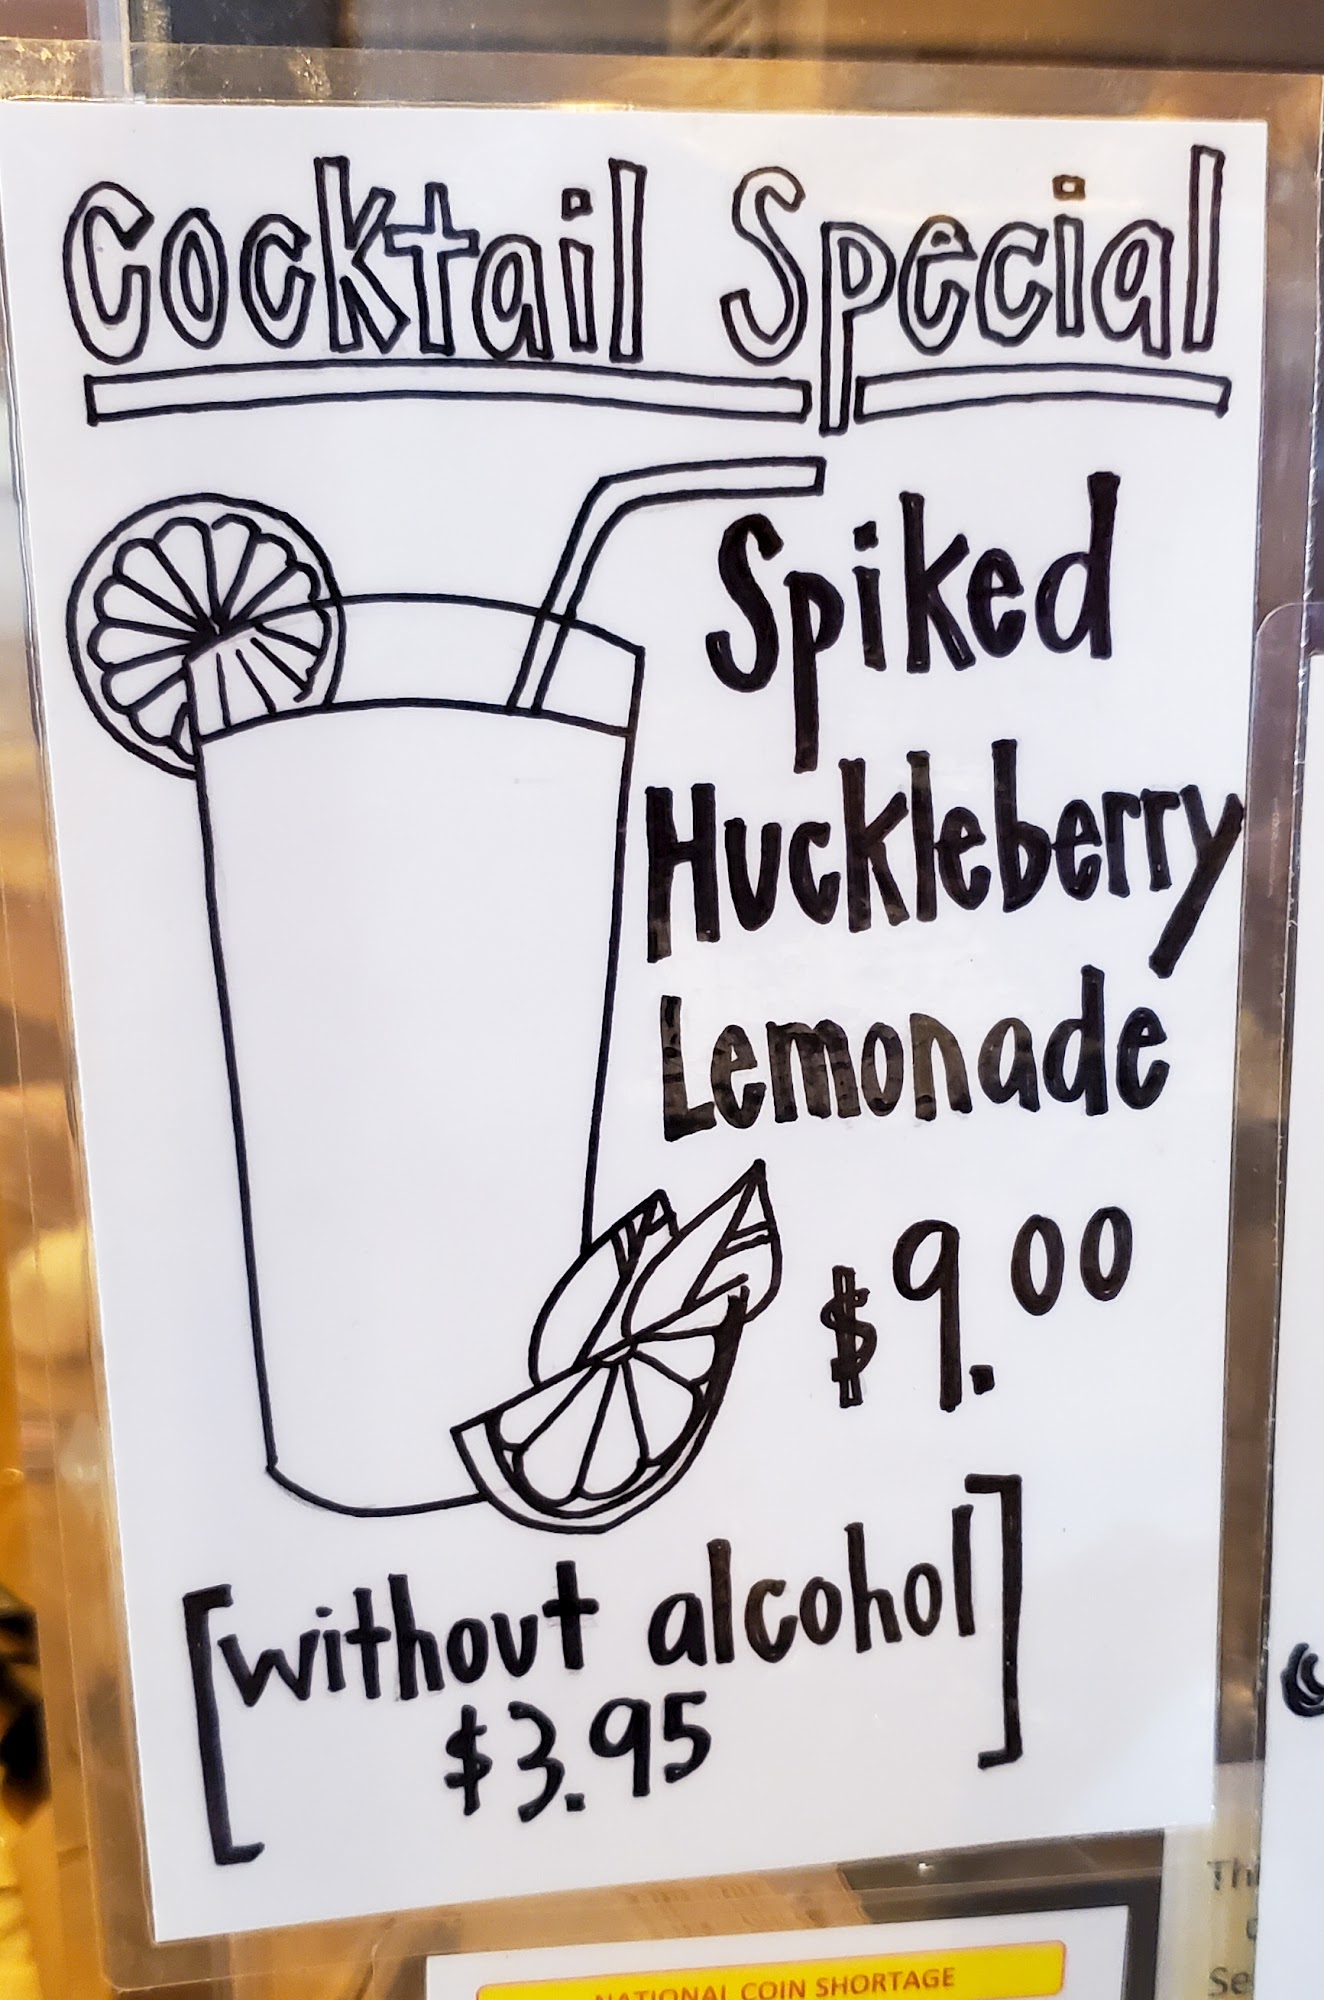 Cocktail Special
Spiked
Huckleberry
Lemonade
$9.00
[without alcohol]
$3.95
NATIONAL COIN SHORTAGE